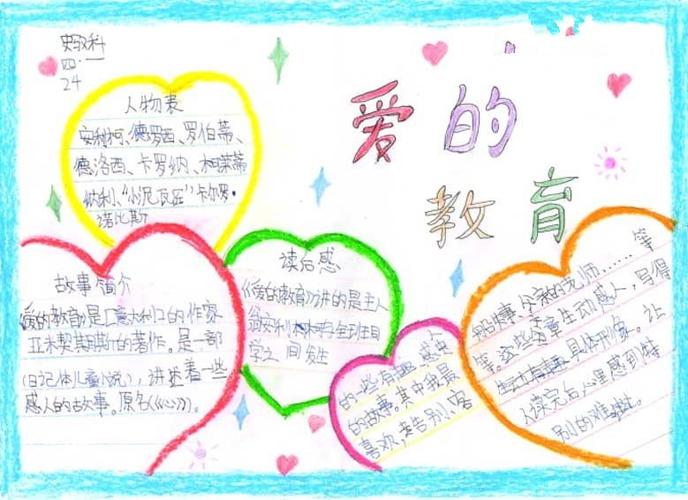 四·一
24
爱的
教育
人物表
安利柯、德罗西、罗伯蒂、
德洛西、卡罗纳、
“小泥瓦匠”卡尔罗·
诺比斯
故事简介
《爱的教育》是意大利的作家
亚米契斯的著作。是一部
(日记体儿童小说),讲述着一些
感人的故事。原名《心》。
读后感
《爱的教育》讲的是主人
学之间发生
的一些有趣、感动
的故事。其中我最
喜欢,老告别、客
船上事、父亲的老师……等
等。这些文章生动感人,写得
具体形象。让
人读完后心里感到特
别的难